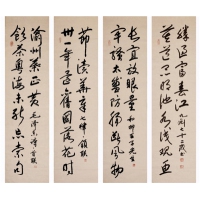 飲茶粵海未能忘索句
渝州葉正黃
卅一年還舊國落花時
節讀華章
牢騷太盛防腸斷風物
長宜放眼量 和柳亞子先生
莫道昆明池水淺觀魚
勝過富春江